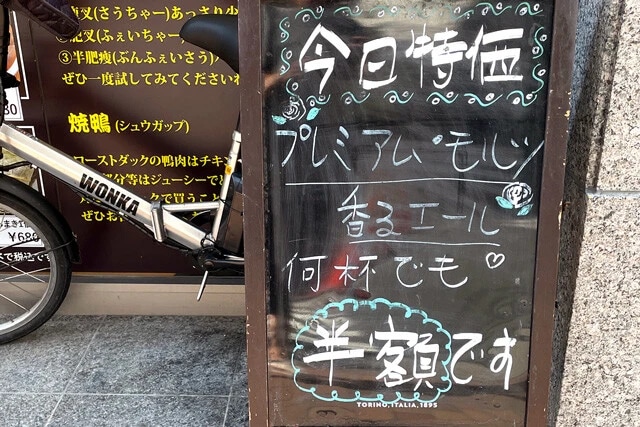 叉(さうちゃー)あっさり
②肥叉(ふぇいちゃー)
③半肥痩(ぶんふぇいさう)
ぜひ一度試してみてくださいね
焼鴨(シュウガップ)
ローストダックの鴨肉はチキ
部分等はジューシーでと
クで買うこと
ぜひお
WONKA
30
まき
¥680
で税込です
今日特価
プレミアム・モルツ
香るエール
何杯でも♡
半額です
TORINO, ITALIA, 1895